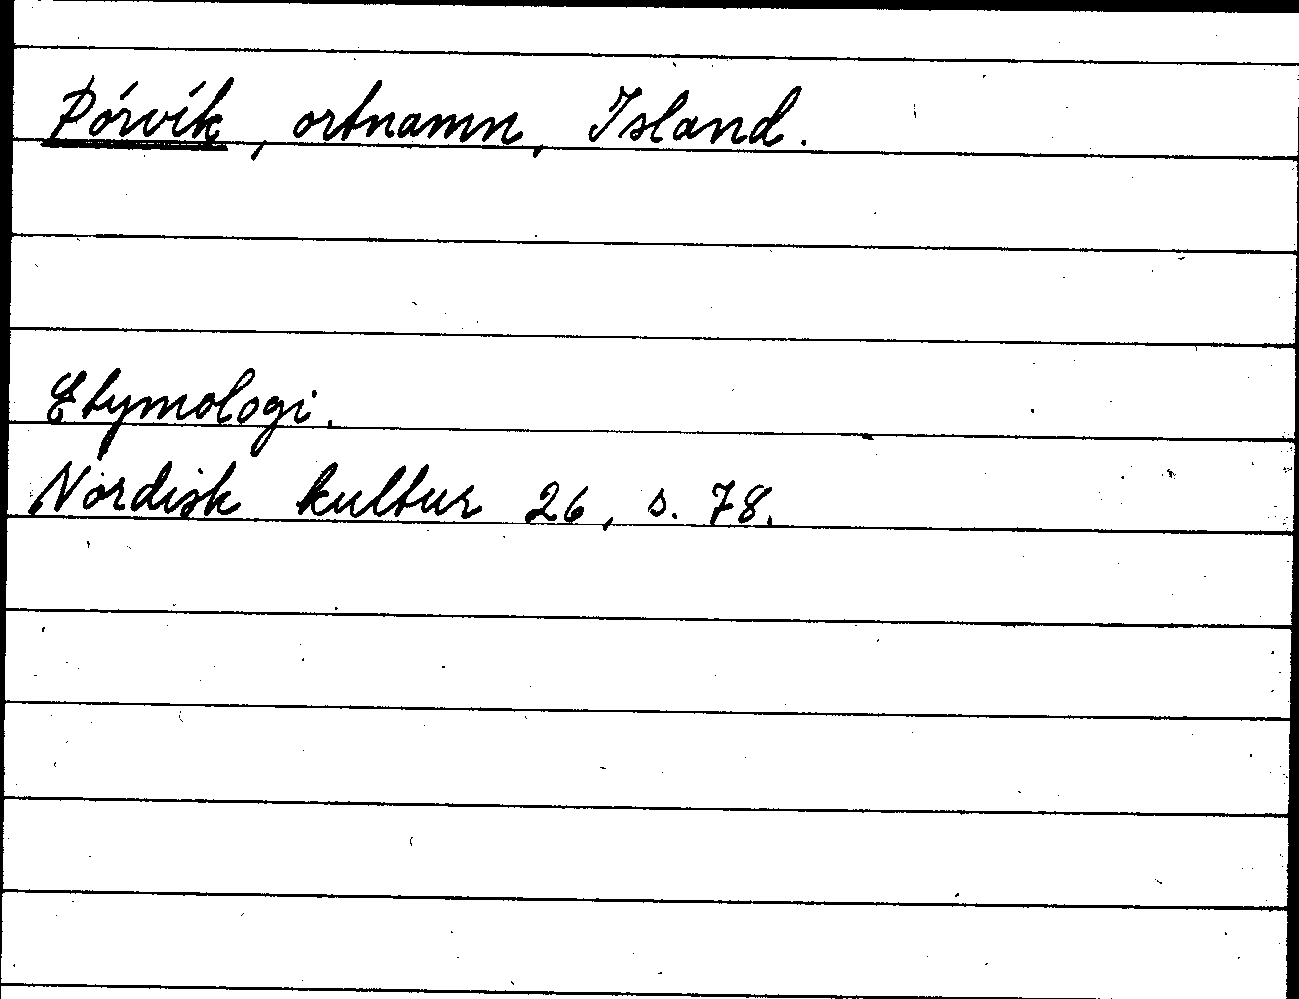 Þórvík, ortnamn, Island.
Etymologi.
Nordisk kultur 26, s. 78.